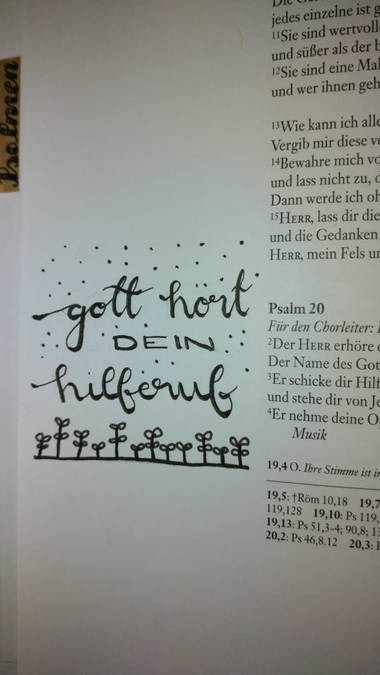 Psalmen
gott hört
DEIN
hilferuf
jedes einzelne ist g
11Sie sind wertvoll
und süßer als der b
12Sie sind eine Mal
und wer ihnen geh
13Wie kann ich alle
Vergib mir diese ve
14Bewahre mich vo
und lass nicht zu, d
Dann werde ich oh
15HERR, lass dir die
und die Gedanken
HERR, mein Fels un
Psalm 20
Für den Chorleiter:
2Der HERR erhöre d
Der Name des Got
3Er schicke dir Hilf
und stehe dir von Je
4Er nehme deine O
Musik
19,4 O. Ihre Stimme ist in
19,5: †Röm 10,18 19,7
119,128 19,10: Ps 119,
19,13: Ps 51,3-4; 90,8; 13
20,2: Ps 46,8.12 20,3: P